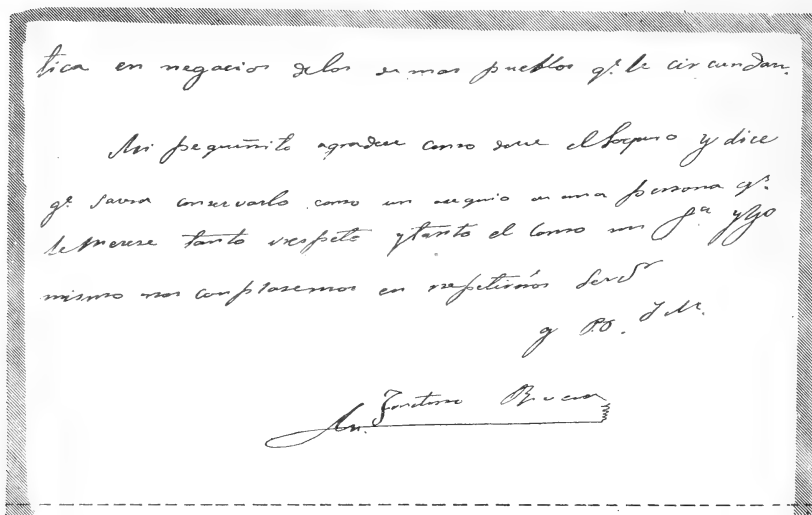 tica en negacios delos demas pueblos qe. le circundan.
Mi pequeñito agradece como deve el Soquio y dice
qe. savra conservarlo como un osequio de una persona qe.
le merese tanto respeto y tanto el como mi Sra. y Yo
mismo nos complasemos en repetirnos
y
Fructuoso Rivera